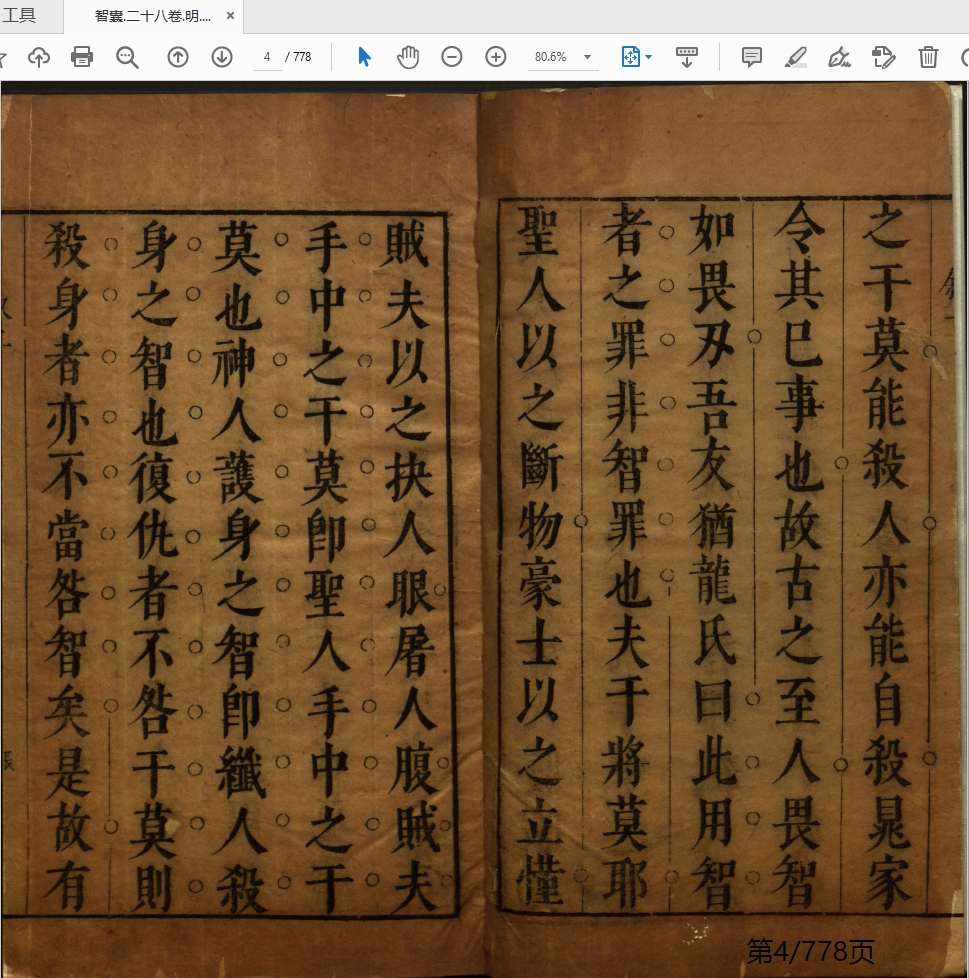 工具
智囊.二十八卷.明....
4 / 778
80.6%
之干莫能殺人亦能自殺晁家
令其巳事也故古之至人畏智
如畏刄吾友猶龍氏曰此用智
者之罪非智罪也夫干將莫耶
聖人以之斷物豪士以之立慬
賊夫以之抉人眼屠人腹賊夫
手中之干莫卽聖人手中之干
莫也神人護身之智卽纖人殺
身之智也復仇者不咎干莫則
殺身者亦不當咎智矣是故有
第4/778页